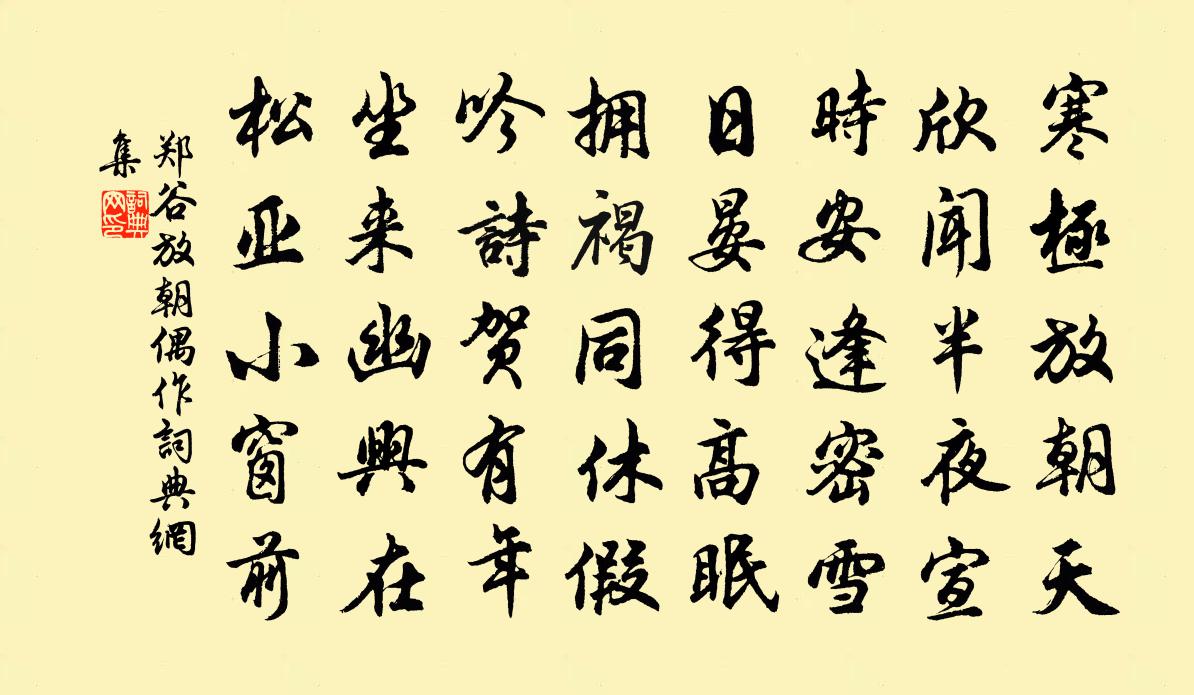 寒極放朝天
欣聞半夜宣
時安逢密雪
日晏得高眠
拥褐同休假
吟詩贺有年
坐来幽興在
松亚小窗前
郑谷放朝偶作詞典網
集
詞典網印